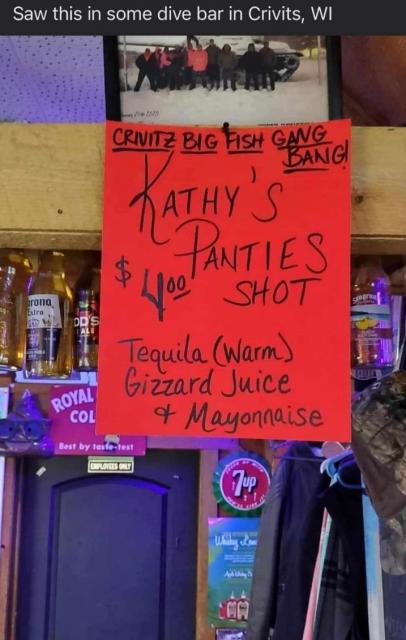 Saw this in some dive bar in Crivits, WI
CRIVITZ BIG FISH GANG
BANG!
KATHY'S
PANTIES
$4.00 SHOT
Tequila (Warm)
Gizzard Juice
& Mayonnaise
Corona
Extra
ROYAL
COL
Best by taste-test
EMPLOYEES ONLY
7up
Whiskey